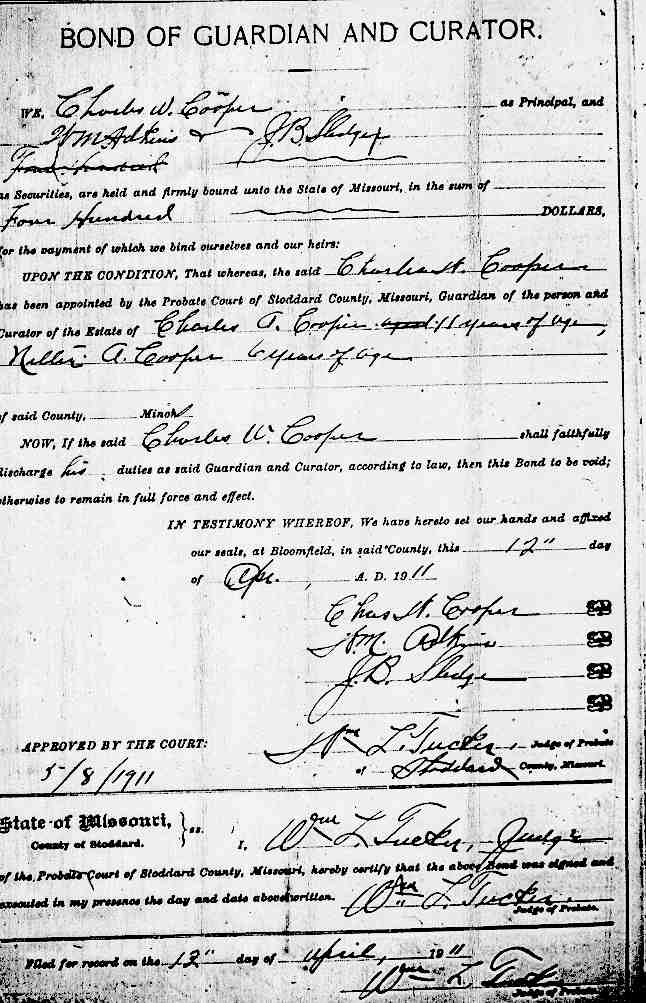 BOND OF GUARDIAN AND CURATOR.
WE, Charles W. Cooper as Principal, and
Wm Adkins & J.B. Sledge
Four hundred
as Securities, are held and firmly bound unto the State of Missouri, in the sum of
Four Hundred DOLLARS,
for the payment of which we bind ourselves and our heirs:
UPON THE CONDITION, That whereas, the said Charles W. Cooper
has been appointed by the Probate Court of Stoddard County, Missouri, Guardian of the person and
Curator of the Estate of Charles T. Cooper aged 11 years of age,
Nellie A. Cooper 6 years of age
of said County, Minors
NOW, If the said Charles W. Cooper shall faithfully
discharge his duties as said Guardian and Curator, according to law, then this Bond to be void;
otherwise to remain in full force and effect.
IN TESTIMONY WHEREOF, We have hereto set our hands and affixed
our seals, at Bloomfield, in said County, this 12" day
of Apr. , A. D. 1911
Chas W. Cooper
W.M. Adkins
J.B. Sledge
APPROVED BY THE COURT: Wm L. Tucker, Judge of Probate
5/8/1911 of Stoddard County, Missouri.
State of Missouri, } ss.
County of Stoddard. I, Wm L. Tucker, Judge
of the Probate Court of Stoddard County, Missouri, hereby certify that the above Bond was signed and
executed in my presence the day and date above written. Wm L. Tucker.
Judge of Probate.
Filed for record on the 12" day of April, 1911
Wm L. Tucker
Judge of Probate.